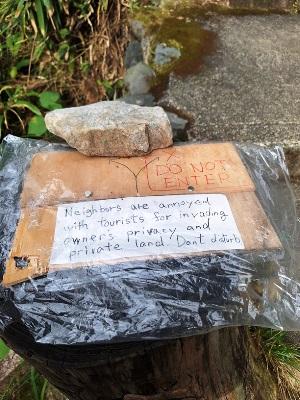 DO NOT
ENTER
Neighbors are annoyed
with Tourists for invading
owners privacy and
private land. Don't disturb